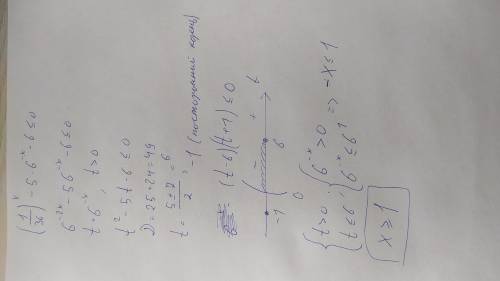 (1/36)^x - 5·6^-x - 6 ≤ 0
6^-2x - 5·6^-x - 6 ≤ 0
t = 6^-x, t > 0
t² - 5t - 6 ≤ 0
D = 25 + 24 = 49
t = (5 ± 7)/2 = 6, -1 (посторонний корень)
(t-6)(t+1) ≤ 0
-1 0 - 6 + t
{ t > 0 { 6^-x > 0
{ t ≤ 6, { 6^-x ≤ 6^1 => -x ≤ 1
x ≥ 1